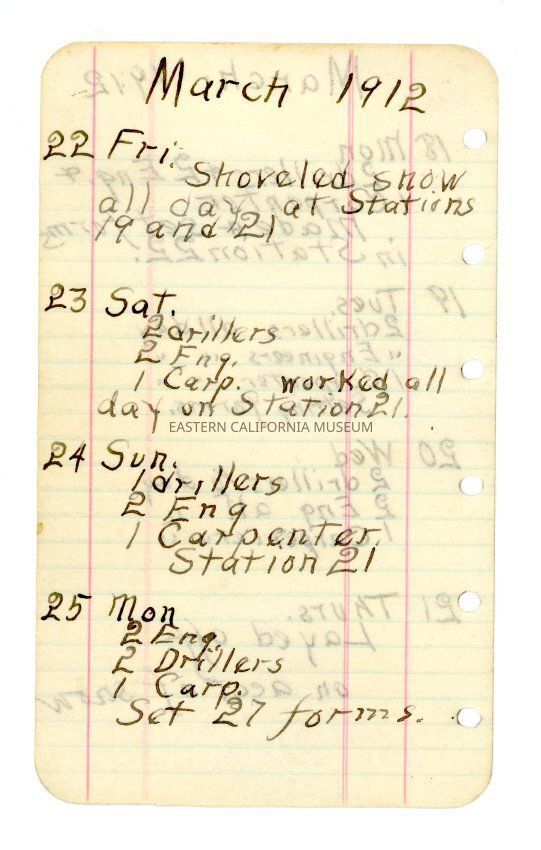 March 1912
22 Fri.
Shoveled snow
all day at Stations
19 and 21
23 Sat.
2 drillers
2 Eng.
1 Carp. worked all
day on Station 21.
EASTERN CALIFORNIA MUSEUM
24 Sun.
1 drillers
2 Eng
1 Carpenter.
Station 21
25 Mon
2 Eng.
2 Drillers
1 Carp.
Set 27 forms.